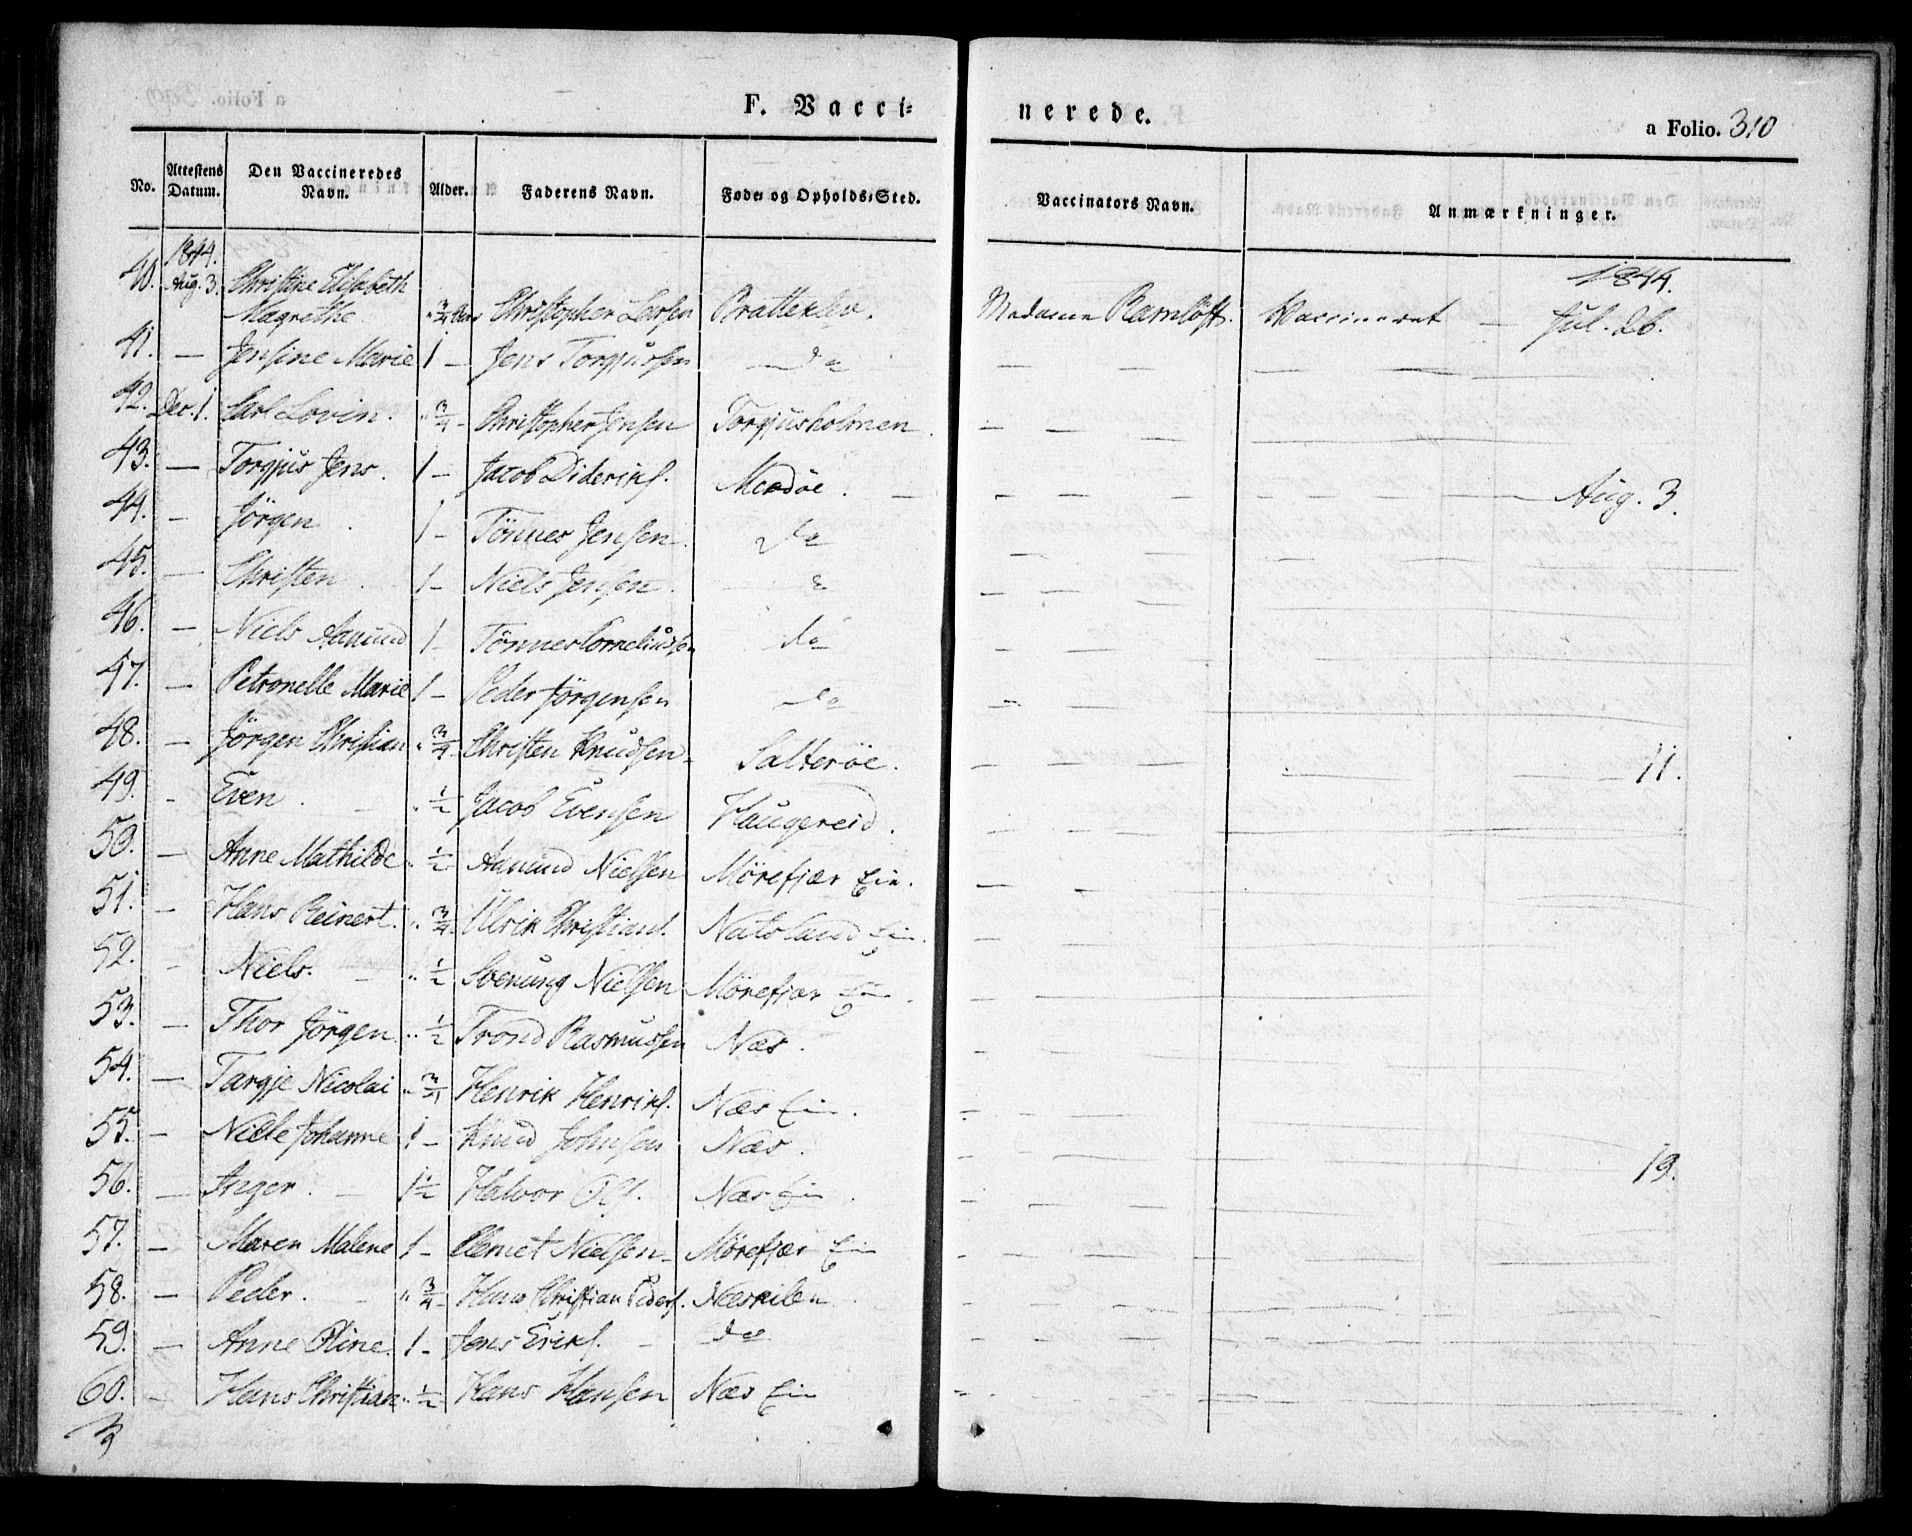 F. Vacci⸗nerede.
a Folio. 310
No. Attestens Datum. Den Vaccineredes Navn. Alder. Faderens Navn. Føde⸗ og Opholds⸗Sted. Vaccinators Navn. Anmærkninger.
1844. 1844.
40. Aug. 3. Christine Elisabeth
Magrethe. " 3/4 Christopher Larsen Bratteklev. Madame Ramløft. Vaccineret — Jul. 26.
41. — Jensine Marie 1 — Jens Torgjussen — do
42. Dec. 1. Carl Lovin. " 3/4 - Christopher Jensen Torgjusholmen.
43. — Torgjus Jens. 1 — Jacob Dideriks. Merdöe. — Aug. 3.
44. — Jörgen. 1 - Tönnes Jensen. do
45. — Christen. 1 - Niels Jensen. do
46. — Niels Aanund 1 - Tönnes Corneliudsen do
47. — Petronelle Marie 1 - Peder Jörgensen do
48. — Jörgen Christian " 3/4 - Christen Knudsen - Salteröe. — 11.
49. - Even. " 1/2 - Jacob Evensen Haugereid.
50. — Anne Mathilde " 1/2 - Aanund Nielsen Mörefjær Ein.
51. - Hans Reinert. " 3/4 - Ulrik Christians. Natvland Ein.
52. - Niels. " 1/2 Sverung Nielsen Mörefjær Ein.
53. — Thor Jörgen. " 1/2 Trond Rasmussen Næs.
54. — Targje Nicolai " 3/4 Henrik Henriks. Næs Ein.
55. — Niele Johanne 1 - Knud Johnsen Næs.
56. — Inger. 1 1/2 Halvor Ols. Næs Ein. 19.
57. — Maren Malene 1 - Clemet Nielsen - Mörefjær Ein
58. — Peder. " 3/4 - Hans Christian Peders. Næskilen
59. — Anne Oline. 1 - Jens Eriks. - do
60. - Hans Christian " 1/2 - Hans Hansen Næs Ein